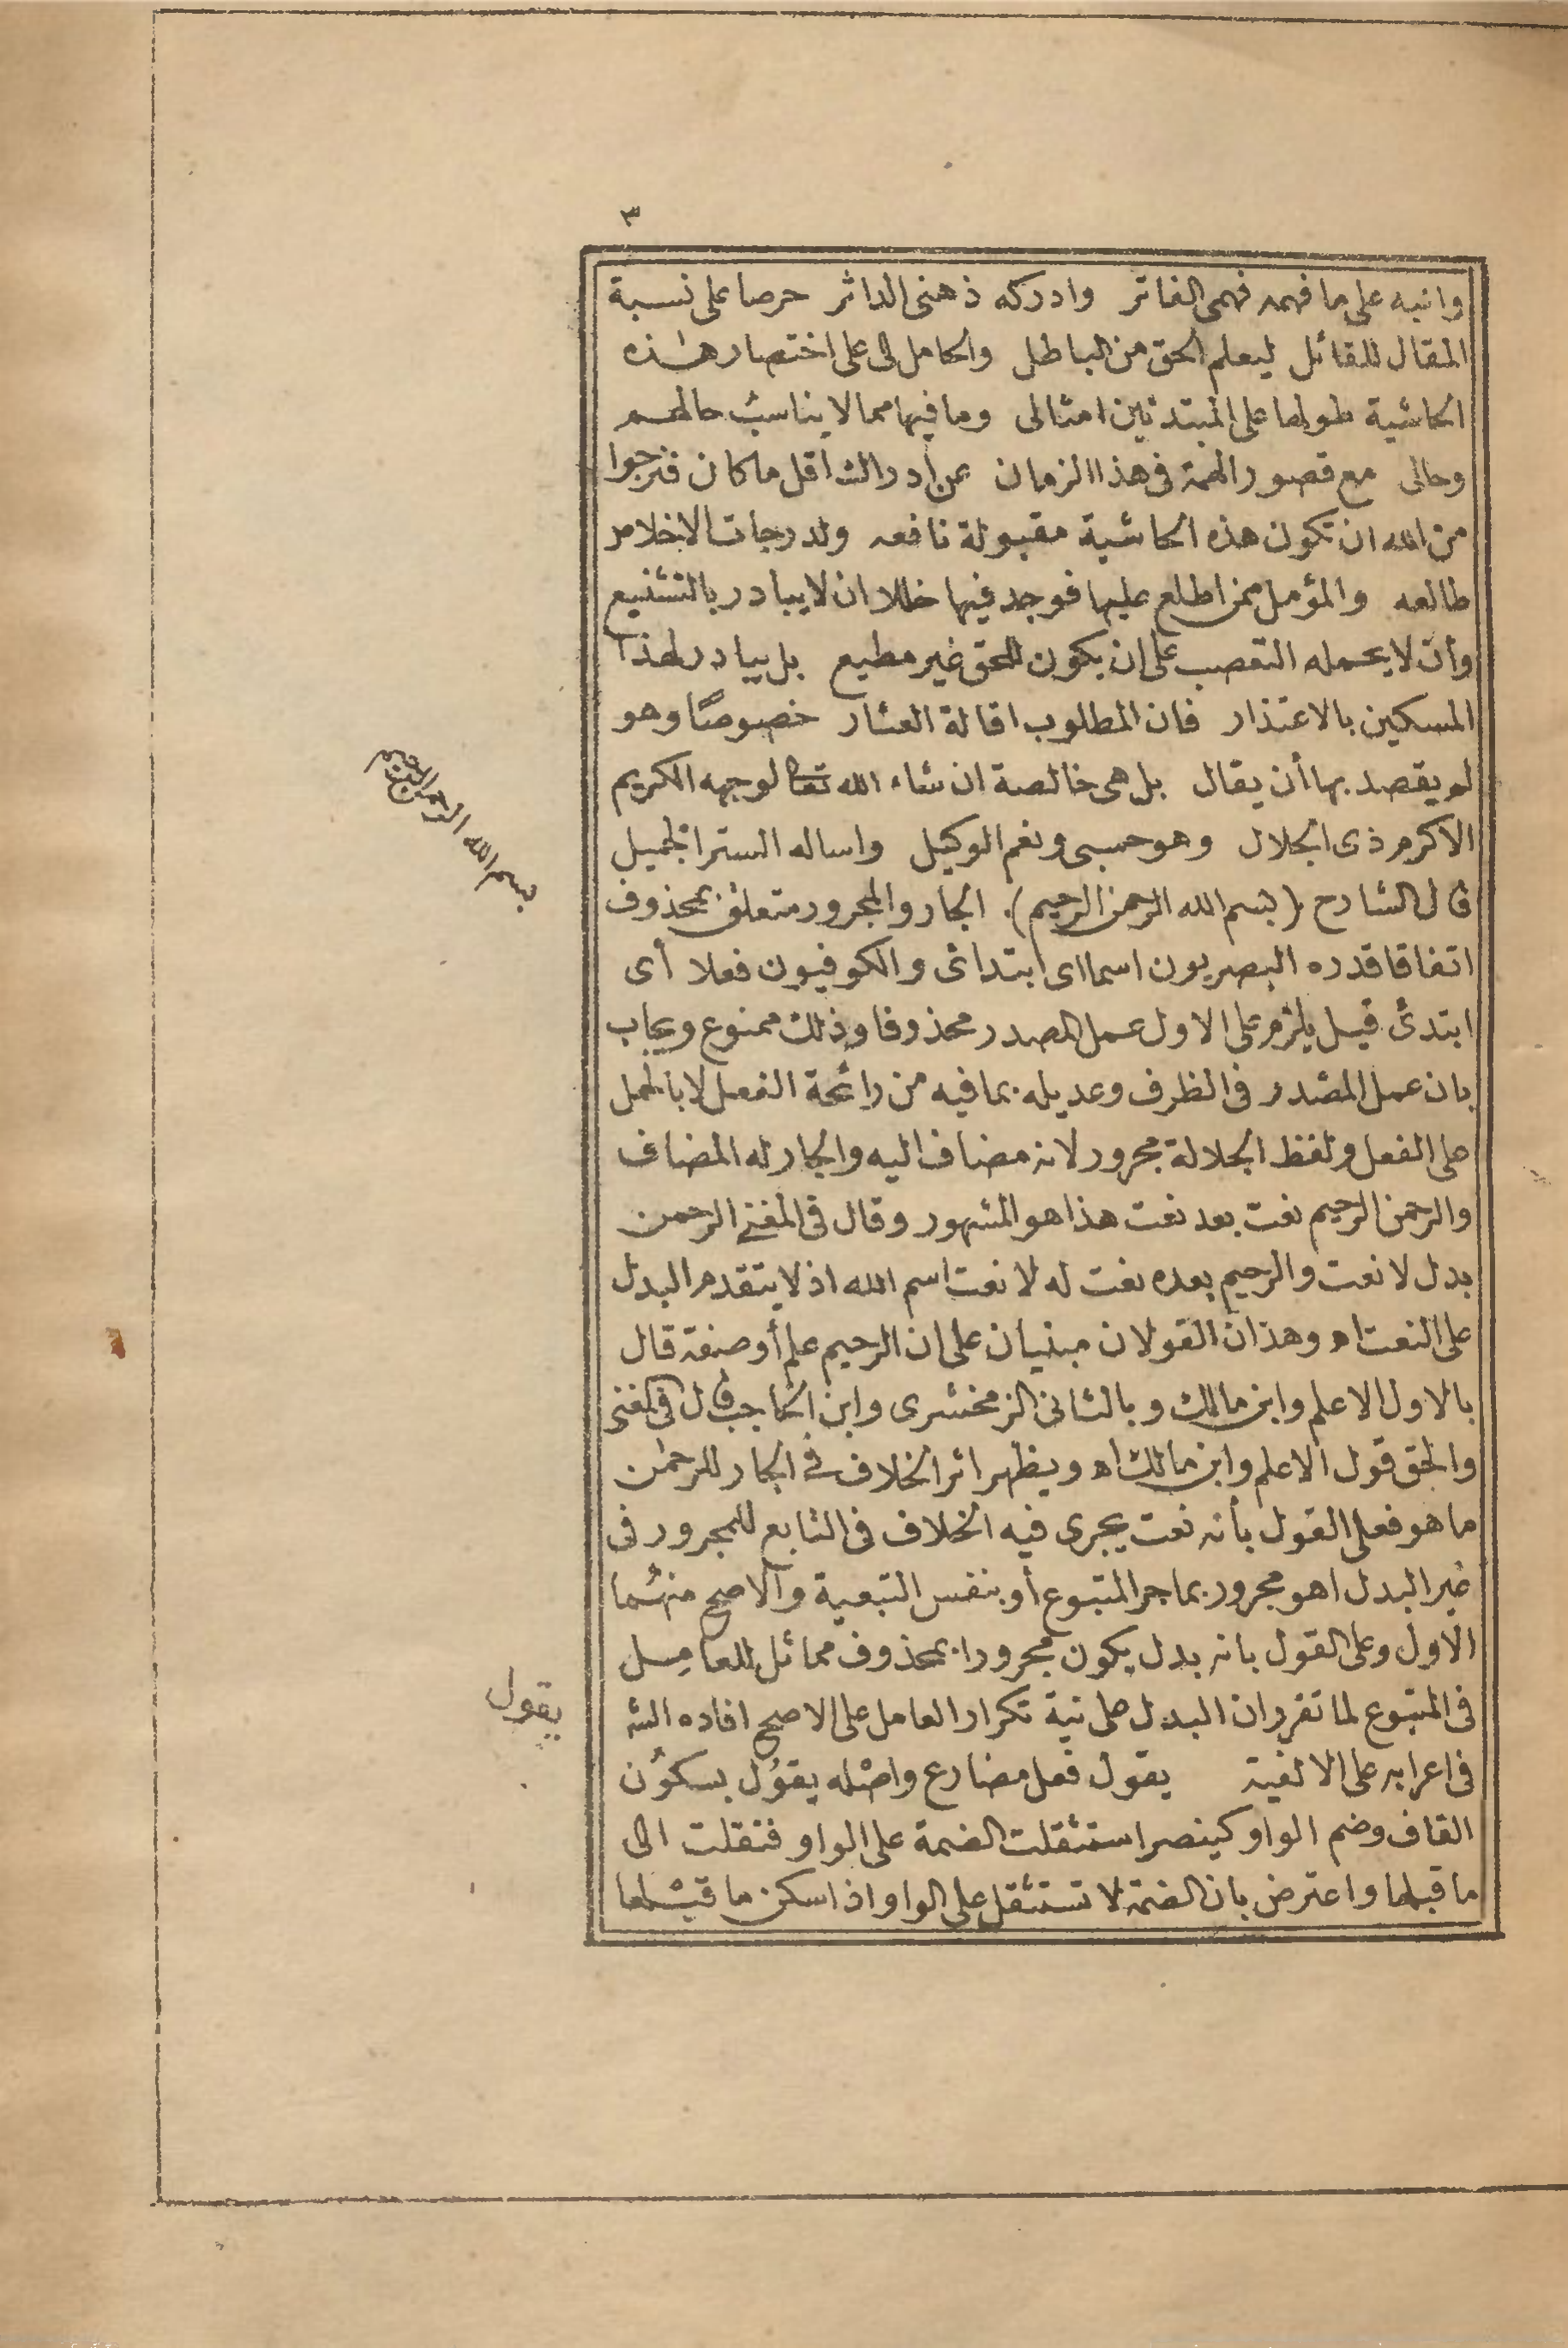 ٣
وانبه على ما فهمه فهمى الفاتر وادركه ذهنى الداثر حرصا على نسبة
المقال للقائل ليعلم الحق من الباطل والحامل لى على اختصار هذه
الحاشية طولها على المبتدئين امثالى وما فيها مما لا يناسب حالهم
وحالى مع قصور الهمة فى هذا الزمان عن ادراك اقل ما كان فنرجوا
من الله ان تكون هذه الحاشية مقبولة نافعه ولدرجات الاخلاص
طالعه والمؤمل ممن اطلع عليها فوجد فيها خللا ان لا يبادر بالتشنيع
وأن لا يحمله التعصب على ان يكون للحق غير مطيع بل يبادر لهذا
المسكين بالاعتذار فان المطلوب اقالة العثار خصوصًا وهو
لم يقصد بها أن يقال بل هى خالصة ان شاء الله تعا لوجهه الكريم
الاكرم ذى الجلال وهو حسبى ونعم الوكيل واساله الستر الجميل
قال الشارح (بسم الله الرحمن الرحيم). الجار والمجرور متعلق بمحذوف
بسم الله الرحمن الرحيم
اتفاقا قدره البصريون اسما اى ابتدائى والكوفيون فعلا أى
ابتدئ قيل يلزم على الاول عمل المصدر محذوفا وذلك ممنوع ويجاب
بان عمل المصدر فى الظرف وعديله بما فيه من رائحة الفعل لا بالحمل
على الفعل ولفظ الجلالة مجرور لانه مضاف اليه والجار له المضاف
والرحمن الرحيم نعت بعد نعت هذا هو المشهور وقال فى المغنى الرحمن
بدل لا نعت والرحيم بعده نعت له لا نعت اسم الله اذ لا يتقدم البدل
على النعت اه وهذان القولان مبنيان على ان الرحيم علم أو صفة قال
بالاول الاعلم وابن مالك وبالثانى الزمخشرى وابن الحاجب قال فى المغنى
والحق قول الاعلم وابن مالك اه ويظهر اثر الخلاف فى الجار للرحمن
ما هو فعلى القول بأنه نعت يجرى فيه الخلاف فى التابع للمجرور فى
غير البدل اهو مجرور بما جر المتبوع أو بنفس التبعية والاصح منهما
الاول وعلى القول بانه بدل يكون مجرورا بمحذوف مماثل للعامل
فى المتبوع لما تقرر ان البدل على نية تكرار العامل على الاصح افاده الشـ
يقول
فى اعرابه على الالفية يقول فعل مضارع واصله يقوُل بسكون
القاف وضم الواو كينصر استثقلت الضمة على الواو فنقلت الى
ما قبلها واعترض بان الضمة لا تستثقل على الواو اذا سكن ما قبلها